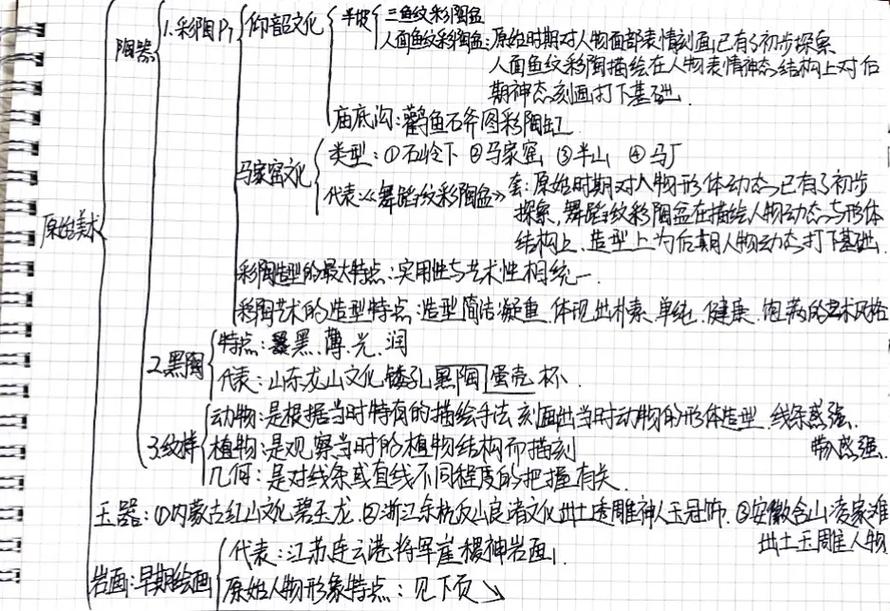 原始美术
陶器
1.彩陶P1
仰韶文化
半坡
三鱼纹彩陶盆
人面鱼纹彩陶盆:原始时期对人物面部表情刻画已有了初步探索
人面鱼纹彩陶描绘在人物表情神态结构上对后
期神态刻画打下基础.
庙底沟:鹳鱼石斧图彩陶缸.
马家窑文化
类型:①石岭下 ②马家窑 ③半山 ④马厂
代表:《舞蹈纹彩陶盆》套:原始时期对人物形体动态已有了初步
探索,舞蹈纹彩陶盆在描绘人物动态与形体
结构上、造型上为后期人物动态打下基础.
彩陶造型的最大特点:实用性与艺术性相统一.
彩陶艺术的造型特点:造型简洁凝重、体现出朴素、单纯、健康、饱满的艺术风格
2.黑陶
特点:黑、薄、光、润
代表:山东龙山文化镂孔黑陶蛋壳杯.
3.纹样
动物:是根据当时特有的描绘手法刻画出当时动物的形体造型、线条感强.
带入感强.
植物:是观察当时的植物结构而描刻
几何:是对线条或直线不同程度的把握有关.
玉器:①内蒙古红山文化碧玉龙.②浙江余杭反山良渚文化出土透雕神人玉冠饰.③安徽含山凌家滩
出土玉雕人物
岩画:早期绘画
代表:江苏连云港将军崖稷神岩画.
原始人物形象特点:见下页↘